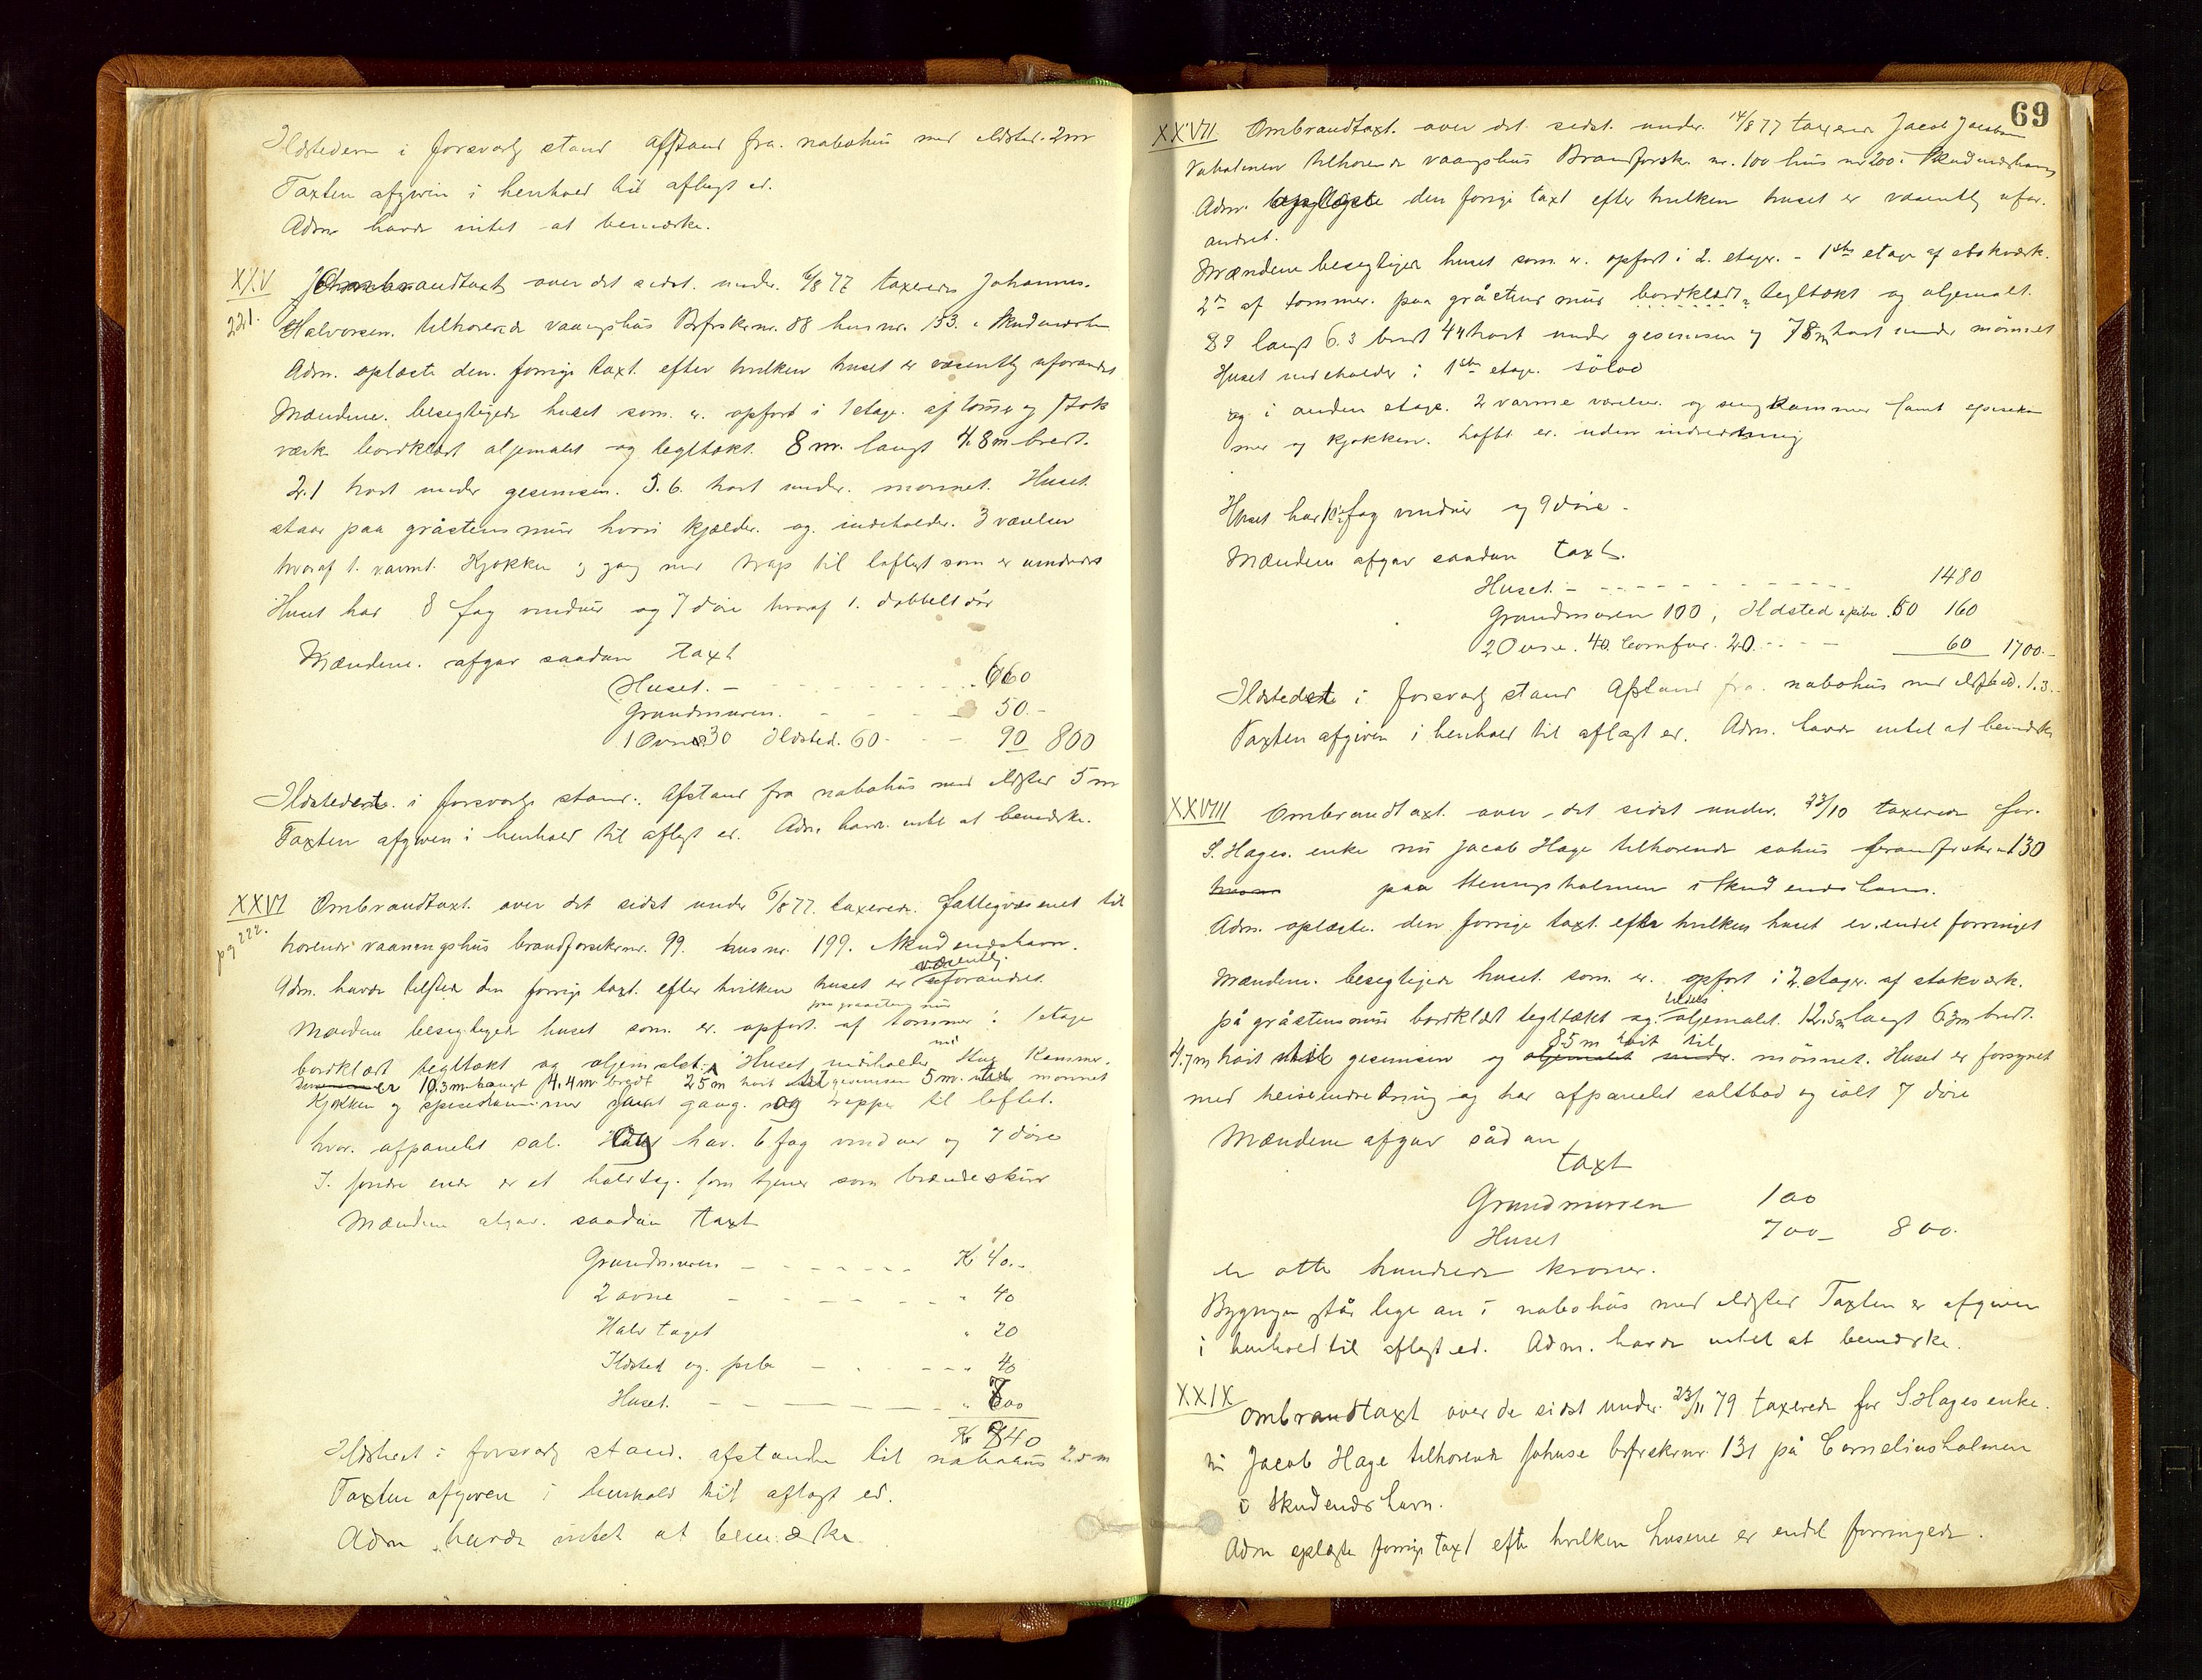 Ildstedene i forsvarlig stand afstand fra nabohus med ildsted. 2m
Taxten afgiven i henhold til aflagt ed.
Adm havde intet at bemærke.
XXV Ombrandtaxt over det sidst. under. 6/8 77 taxerede Johannes.
221. Halvorsen. tilhorende vaangshus Brfrskr nr. 88 hus nr. 153. i Skudeneshn
Adm. oplæste den. forrige taxt. efter hvilken huset er væsentlig uforandret
Mændene. besigtigede huset som. er. opfort i 1 etage. af tomer og stok
værk bordklædt oljemalet og tegltækt. 8 m. langt 4.8m bredt.
2.1 hoit under gesimsen. 5.6. hoit under. monnet. Huset
staar paa gråstensmur hvori kjælder. og. indeholder. 3 værelser
hvoraf 1. varmt. Kjøkken og gang med trap til loftet som er uindredet
Huset har 8 fag vinduer og 7 dore hvoraf 1. dobbelt dør
Mændene. afgav saadan taxt
Huset. - 660
Grundmuren. 50.-
1 Ovn 30 Ildsted. 60 - 90 800
Ildstedet. i forsvarlig stand. Afstand fra nabohus med ildsted 5 m
Taxten afgiven i henhold til aflagt ed. Adm. havde intet at bemærke.
XXVI Ombrandtaxt. over det sidst under 6/8 77. taxerede. fattigvæsenet til
pg 222. horende vaaningshus brandforsikrnr. 99. hus nr. 199. Skudeneshavn.
væsentlig.
Adm. havde tilstede den forrige taxt. efter hvilken huset er uforandret.
paa graastens mur
Mændene besigtigede huset som. er. opfort. af tommer i 1 etage
bordklædt tegltækt og oljemalet. Huset indeholder Stue Kammer.
er 10.3m langt 4.4m bredt 2.5m hoit til gesimsen 5m. monnet
Kjøkken og spisekammer samt gang. og trappe til loftet.
hvor. afpanelet sal. har. 6 fag vinduer og 7 døre
I. søndre ende er et halvtag. som tjener som brændeskur
Mændene afgav. saadan taxt
Grundmuren - Kr 40.-
2 ovne - " 40
Halvtaget " 20
Ildsted og. pibe - " 40
Huset. - "
Kr 840
Ildstedet i forsvarlig stand. afstanden til nabohus 2.5 m
Taxten afgiven i henhold til aflagt ed.
Adm havde intet at bemærke
69
XXVII Ombrandtaxt. over det sidst. under. 14/8 77 taxerede Jacob Jacobsen
Vaholmen tilhorende vaangshus Brandforsk. nr. 100 hus nr 200 i Skudeneshavn
Adm. oplæste den forrige taxt efter hvilken huset er væsentlig ufor.
andret.
Mændene besigtigede huset som. er. opfort i 2. etager. - 1ste etage af stokværk.
2den af tommer. paa gråstens mur bordklædt, tegltækt og oljemalt.
8 9 langt 6.3 bredt 44 hoit under gesimsen og 78m hoit under mønnet
Huset indeholder i 1ste etage. sölod
og i anden etage. 2 varme værelser. og sengkammer samt spiseka
mer og kjøkken. loftet er. uden indredning
Huset har 10 fag vinduer og 9 döre -
Mændene afgav saadan taxt.
Huset. - 1480
Grundmuren 100, Ildsted & pibe. 60 160
2 Ovne. 40. Comfur. 20. - 60 1700.-
Ildstedet i forsvarlig stand Afstand fra nabohus med ildsted. 1.3.-
Taxten afgiven i henhold til aflagt ed. Adm. havde intet at bemærke
XXVIII Ombrandtaxt. over det sidst under. 23/10 taxerede for.
S. Hages. enke nu Jacob Hage tilhorende sohus brandfrskr nr 130
paa Steningsholmen i Skudeneshavn.
Adm. oplæste. den forrige taxt. efter hvilken huset er. endel forringet
Mændene. besigtigede huset. som. er. opfort i 2. etager. af stokværk.
tildels
på gråstensmur bordklædt tegltækt og. oljemalet. 12.5m langt 6.3m bredt.
8.5m høit til
4.7m høit til gesimsen og oljemalet under. mønnet. Huset er forsynet
med heiseindredning og har afpanelet saltbod og ialt 7 döre
Mændene afgav sådan
taxt
Grundmuren 100
Huset 700- 800.
er otte hundrede kroner.
Bygngen står lige an i nabohus med ildsted Taxten er afgiven
i henhold til aflagt ed. Adm. havde intet at bemærke.
XXIX Ombrandtaxt over de sidst under. 23/11 79 taxerede for S Hages enke.
nu Jacob Hage tilhorende söhuse brfrskrnr 131 på Corneliusholmen
i Skudeneshavn.
Adm oplæste forrige taxt efter hvilken husene er endel forringede.